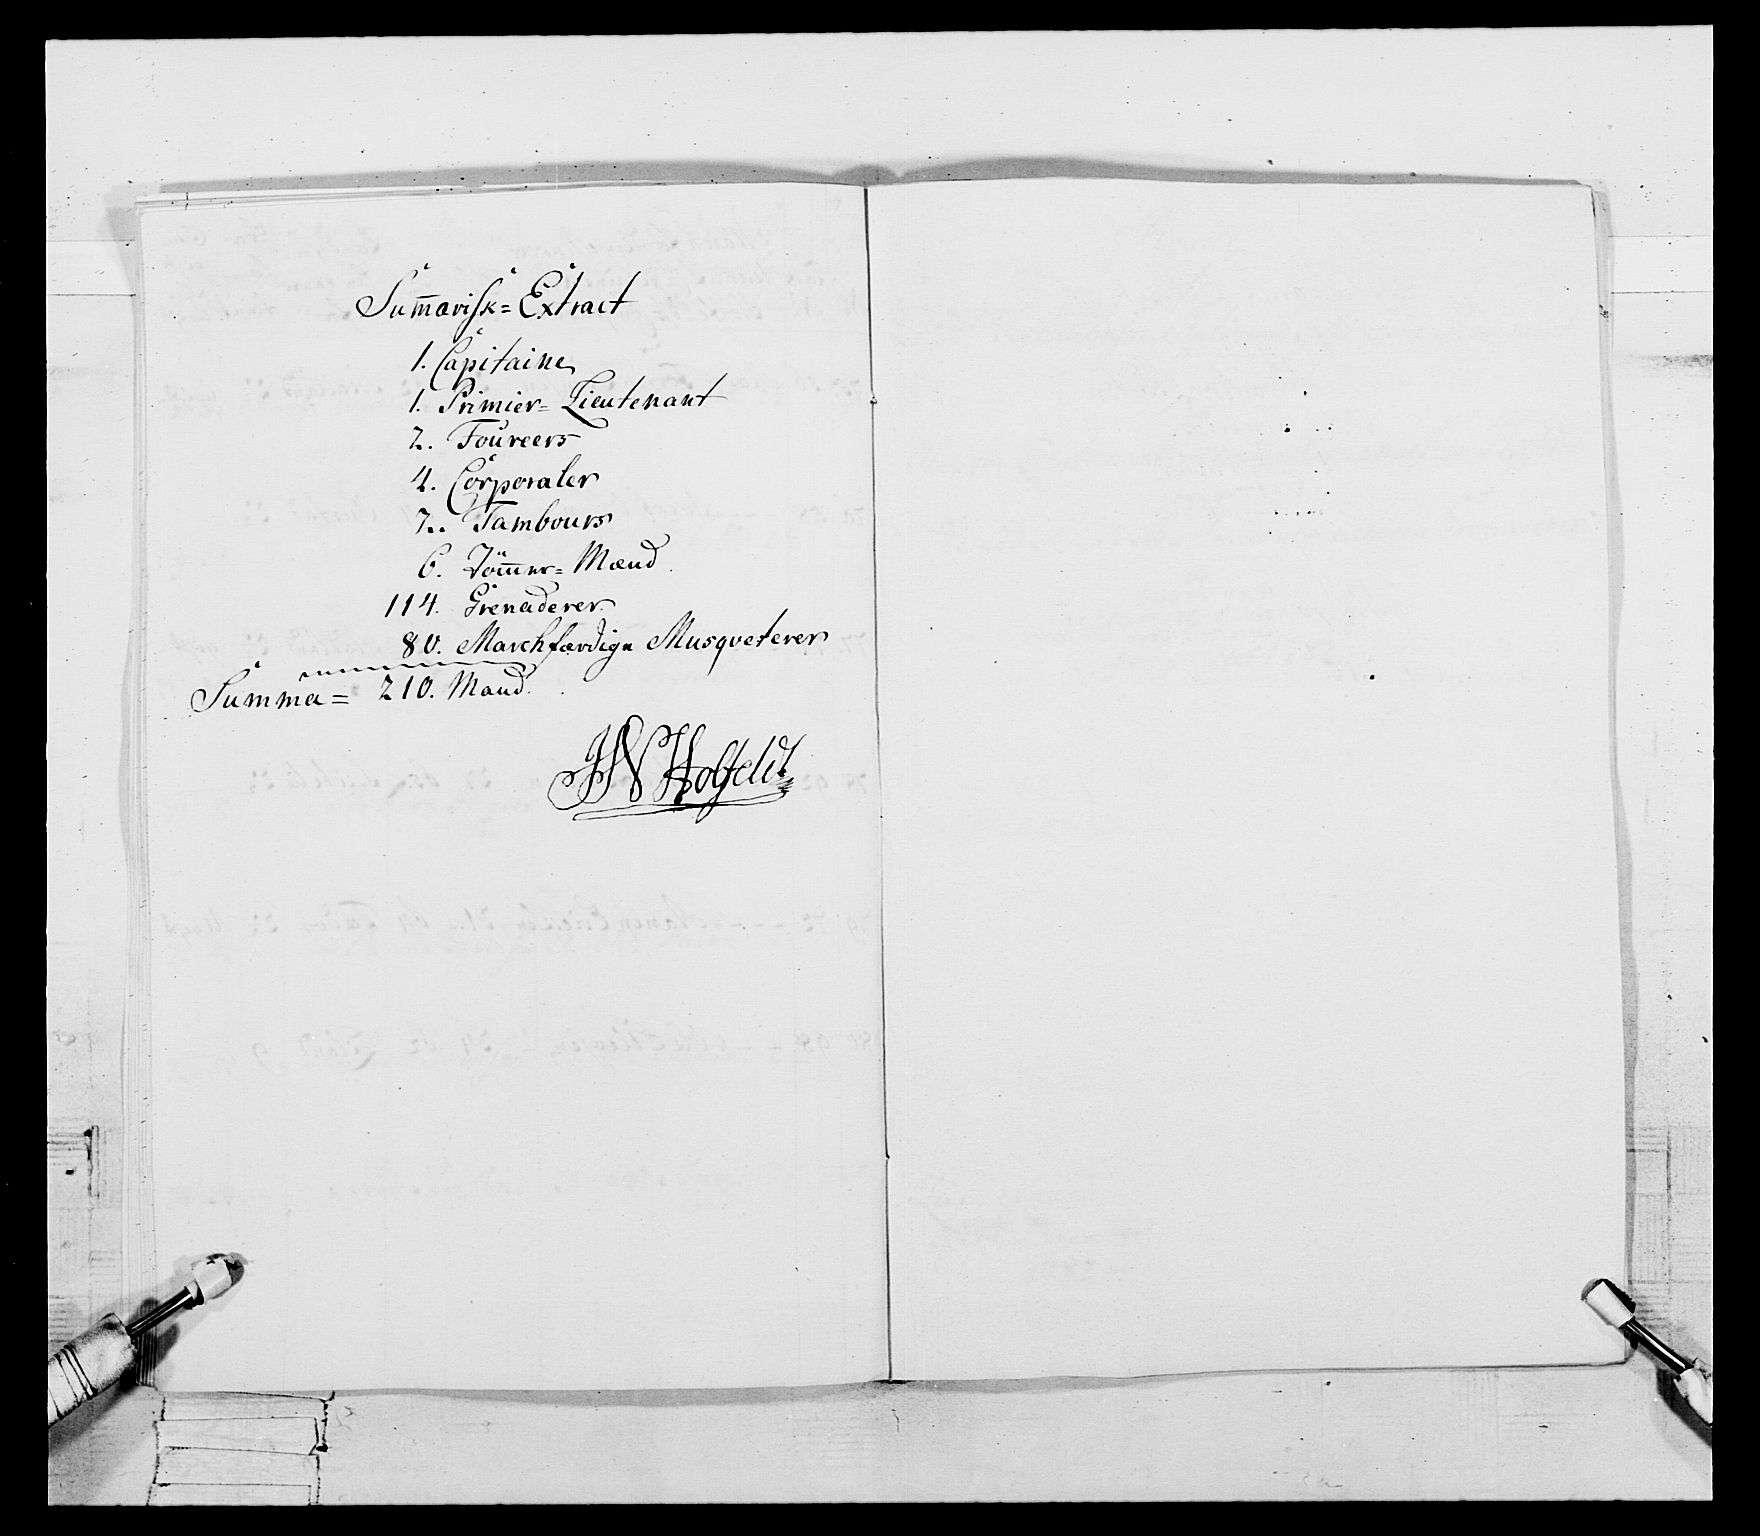 Sum̄arisk= Extract
1. Capitaine
1. Primier= Lieutenant
2. Foureers
4. Corporaler
2. Tambours
6. Töm̄er= Mænd
114. Grenaderer
80. Marchfærdige Musqveterer
Summa= 210. Mand.
Holfeldt